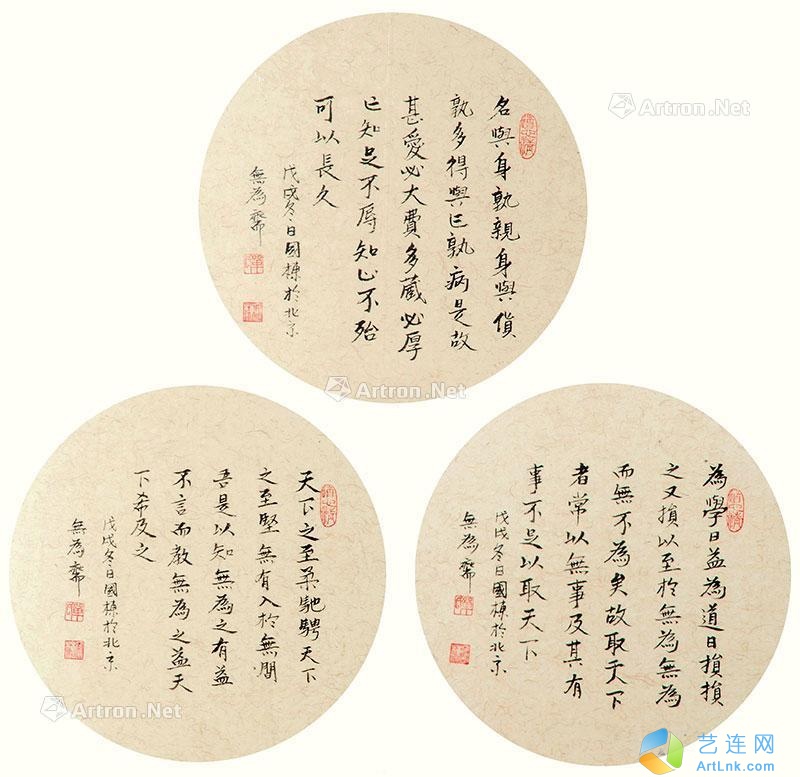 名與身孰親身與貨
孰多得與亡孰病是故
甚愛必大費多藏必厚
亡知足不辱知止不殆
可以長久
戊戌冬日國棟於北京
無為齋
天下之至柔馳騁天下
之至堅無有入於無間
吾是以知無為之有益
不言而教無為之益天
下希及之
戊戌冬日國棟於北京
無為齋
為學日益為道日損損
之又損以至於無為無為
而無不為矣故取天下
者常以無事及其有
事不足以取天下
戊戌冬日國棟於北京
無為齋
Artron.Net
Artron.Net
Artron.Net
Artron.Net
艺连网
ArtLnk.com